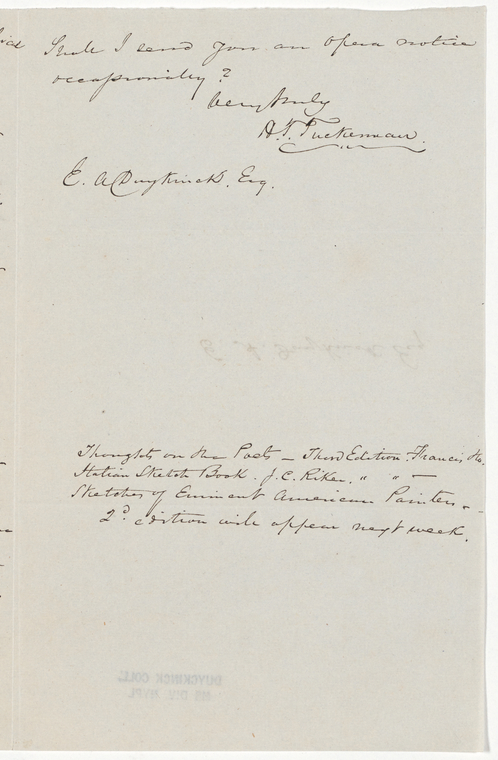 Shall I send you an opera notice
occasionally?
Very truly
H. T. Tuckerman.
E. A. Duyckinck, Esq.
E. A. Duyckinck Esq
Thoughts on the Poets — Third Edition. Francis &
Italian Sketch Book. J. C. Riker. " " —
Sketches of Eminent American Painters. —
2d edition will appear next week.
DUYCKINCK COLL.
MS DIV. NYPL